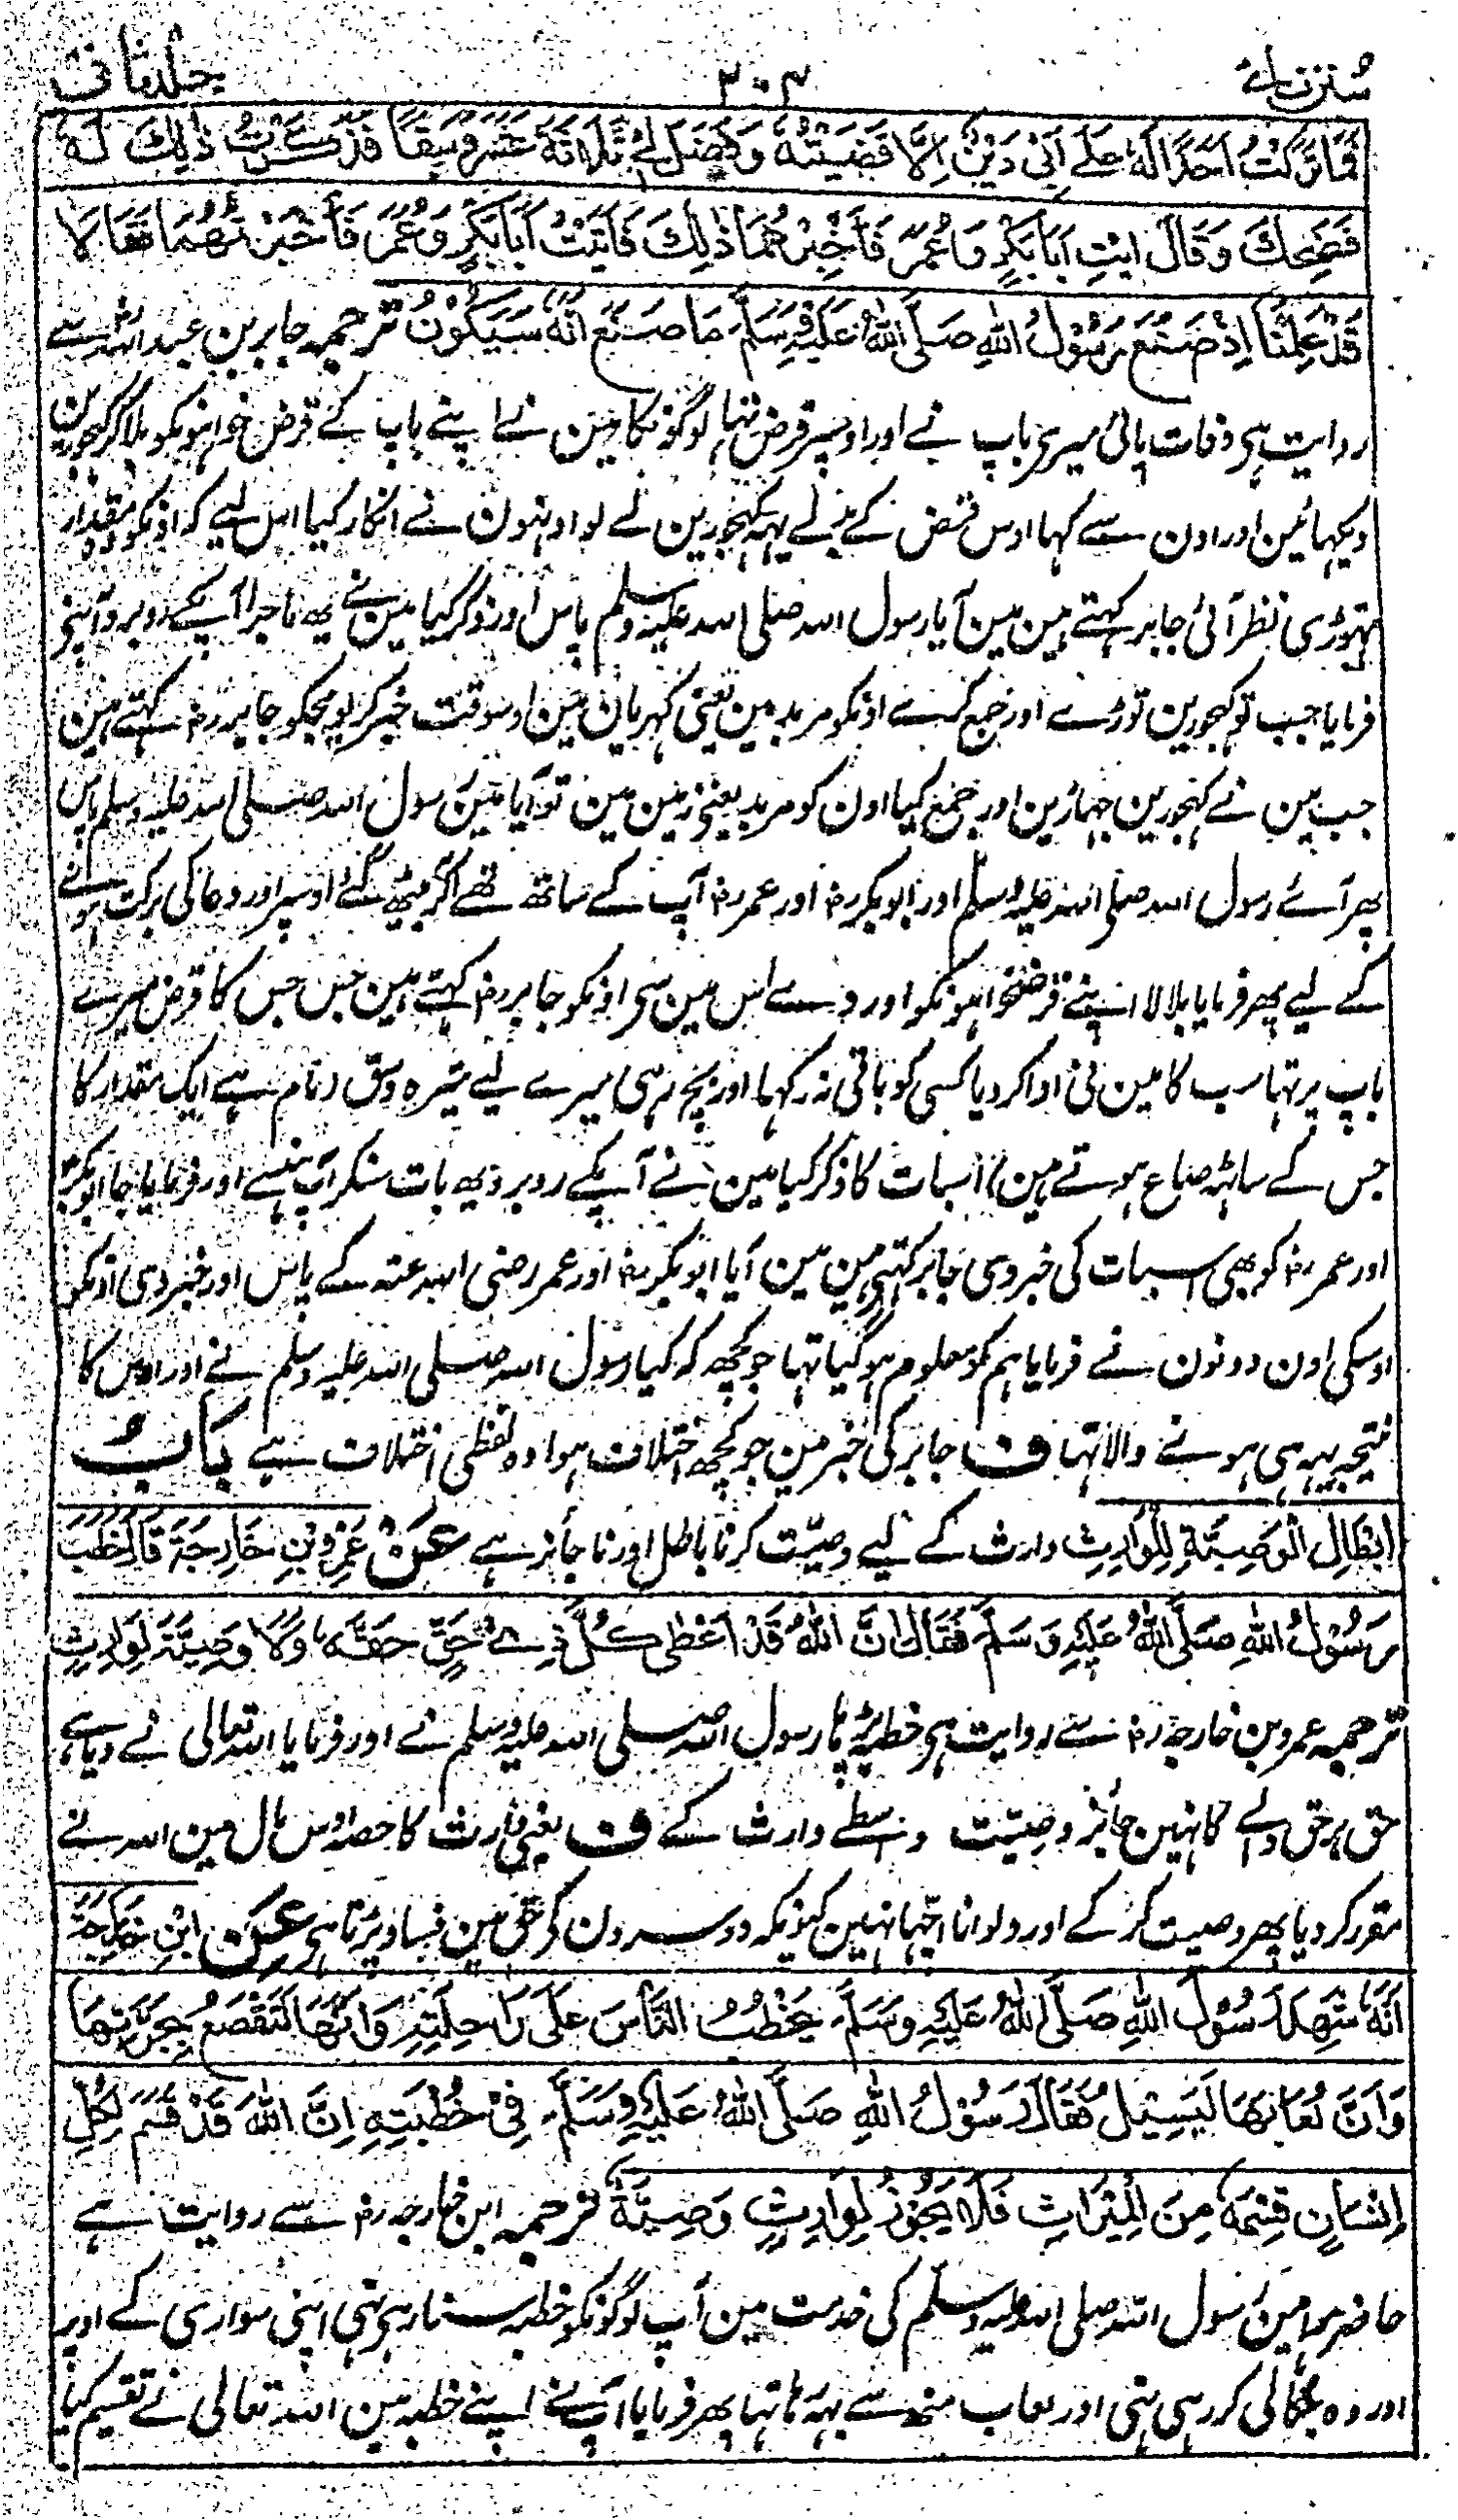 سنن نسائی ۳۰۴ جلد ثانی
فَمَا تَرَكْتُ اَحَدًا لَهٗ عَلٰے اَبِیْ دَیْنٌ اِلَّا قَضَیْتُهٗ وَفَضَلَ لِیْ ثَلَاثَةَ عَشَرَ وَسَقًا فَذَكَرْتُ ذٰلِكَ لَهٗ
فَضَحِكَ وَقَالَ ایْتِ اَبَابَكْرٍ وَعُمَرَ فَاَخْبِرْهُمَا ذٰلِكَ فَاَتَیْتُ اَبَابَكْرٍ وَعُمَرَ فَاَخْبَرْتُهُمَا فَقَالَا
قَدْ عَلِمْنَا اِذْ صَنَعَ رَسُوْلُ اللّٰهِ صَلَّی اللّٰهُ عَلَیْهِ وَسَلَّمَ مَا صَنَعَ اَنَّهٗ سَیَكُوْنُ ترجمہ جابر بن عبد اللہ سے
روایت ہی وفات پائی میری باپ نے اور اوسپر قرض تہا لوگونکا مین نے اپنے باپ کے قرض خواہونکو بلا کر کہجورین
دیکہائین اور اون سے کہا اوس قرض کے بدلے یہہ کہجورین لے لو اونہون نے انکار کیا اس لیے کہ اونکو مقدار
تہوڑی نظر آئی جابر کہتے ہین مین آیا رسول اللہ صلی اللہ علیہ وسلم پاس اور ذکر کیا مین نے یہ ماجرا آپکے روبرو آپنے
فرمایا جب تو کہجورین توڑے اور جمع کرے اونکو مربد مین یعنی کہریان مین اوسوقت خبر کریو مجکو جابر رض کہتے ہین
جب مین نے کہجورین جہاڑین اور جمع کیا اون کو مربد یعنی زمین مین تو آیا مین رسول اللہ صلی اللہ علیہ وسلم پاس
پھر آئے رسول اللہ صلی اللہ علیہ وسلم اور ابو بکر رض اور عمر رض آپ کے ساتھ تھے آکر بیٹھ گئے اوسپر اور دعا کی برکت ہونے
کے لیے پھر فرمایا بلالا اپنے قرضخواہونکو اور دے اس مین سی اونکو جابر رض کہتے ہین جس جس کا قرض میرے
باپ پر تہا سب کا مین نی ادا کر دیا کسی کو باقی نہ رکہا اور بچ رہی میرے لیے تیرہ وسق (نام ہے ایک مقدار کا
جس کے ساٹہہ صاع ہوتے ہین) اسبات کا ذکر کیا مین نے آپکے روبرو یہ بات سنکر آپ ہنسے اور فرمایا جا ابو بکر
اور عمر رض کو بھی اسبات کی خبر دی جابر کہتی ہین مین آیا ابو بکر رض اور عمر رضی اللہ عنہ کے پاس اور خبر دی اونکو
اوسکی اون دونون نے فرمایا ہم کو معلوم ہو گیا تہا جو کچھ کہ کیا رسول اللہ صلی اللہ علیہ وسلم نے اور اوس کا
نتیجہ یہہ ہی ہونے والا تہا ف جابر کی خبر مین جو کچھ اختلاف ہوا وہ لفظی اختلاف ہے بَابُ
اِبْطَالِ الْوَصِیَّةِ لِلْوَارِثِ وارث کے لیے وصیّت کرنا باطل اور ناجائز ہے عَنْ عَمْرِو بْنِ خَارِجَةَ قَالَ خَطَبَ
رَسُوْلُ اللّٰهِ صَلَّی اللّٰهُ عَلَیْهِ وَسَلَّمَ فَقَالَ اِنَّ اللّٰهَ قَدْ اَعْطٰی كُلَّ ذِیْ حَقٍّ حَقَّهٗ وَلَا وَصِیَّةَ لِوَارِثٍ
ترجمہ عمرو بن خارجہ رض سے روایت ہی خطبہ پڑہا رسول اللہ صلی اللہ علیہ وسلم نے اور فرمایا اللہ تعالی نے دیا ہے
حق ہر حق والے کا نہین جائز وصیّت واسطے وارث کے ف یعنی وارث کا حصہ اوس مال مین اللہ نے
مقرر کر دیا پھر وصیت کر کے اور دلوانا اچہا نہین کیونکہ دوسرون کی حق مین فساد پڑتا ہی عَنِ ابْنِ خَارِجَةَ
اَنَّهٗ شَهِدَ رَسُوْلَ اللّٰهِ صَلَّی اللّٰهُ عَلَیْهِ وَسَلَّمَ یَخْطُبُ النَّاسَ عَلٰی رَاحِلَتِهٖ وَاِنَّهَا لَتَقْصَعُ بِجِرَّتِهَا
وَاِنَّ لُعَابَهَا لَیَسِیْلُ فَقَالَ رَسُوْلُ اللّٰهِ صَلَّی اللّٰهُ عَلَیْهِ وَسَلَّمَ فِیْ خُطْبَتِهٖ اِنَّ اللّٰهَ قَدْ قَسَمَ لِكُلِّ
اِنْسَانٍ قِسْمَهٗ مِنَ الْمِیْرَاثِ فَلَا یَجُوْزُ لِوَارِثٍ وَصِیَّةٌ ترجمہ ابن خارجہ رض سے روایت ہے
حاضر ہوا مین رسول اللہ صلی اللہ علیہ وسلم کی خدمت مین آپ لوگونکو خطبہ سنا رہی تہی اپنی سواری کے اوپر
اور وہ جگالی کر رہی تہی اور لعاب منہ سے بہہ رہا تہا پھر فرمایا آپ نے اپنے خطبہ مین اللہ تعالی نے تقسیم کیا